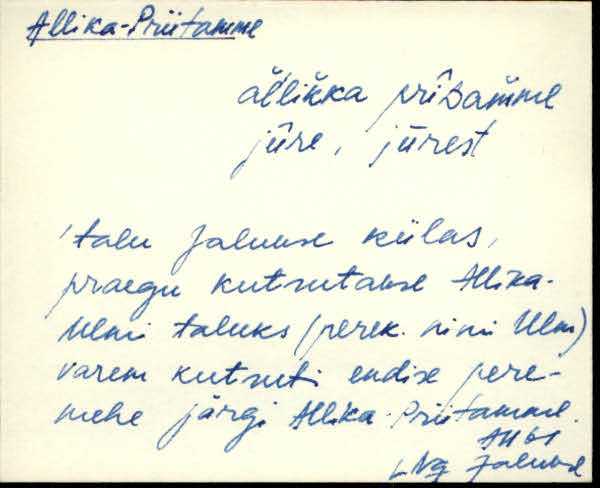 Allika-Priitamme
äĺlikka prîDamme
jüre, jürest
talu Jaluse külas,
praegu kutsutakse Allika-
Ulmi taluks (perek. nimi Ulm)
varem kutsuti endise pere-
mehe järgi Allika-Priitamme.
LNg Jaluse